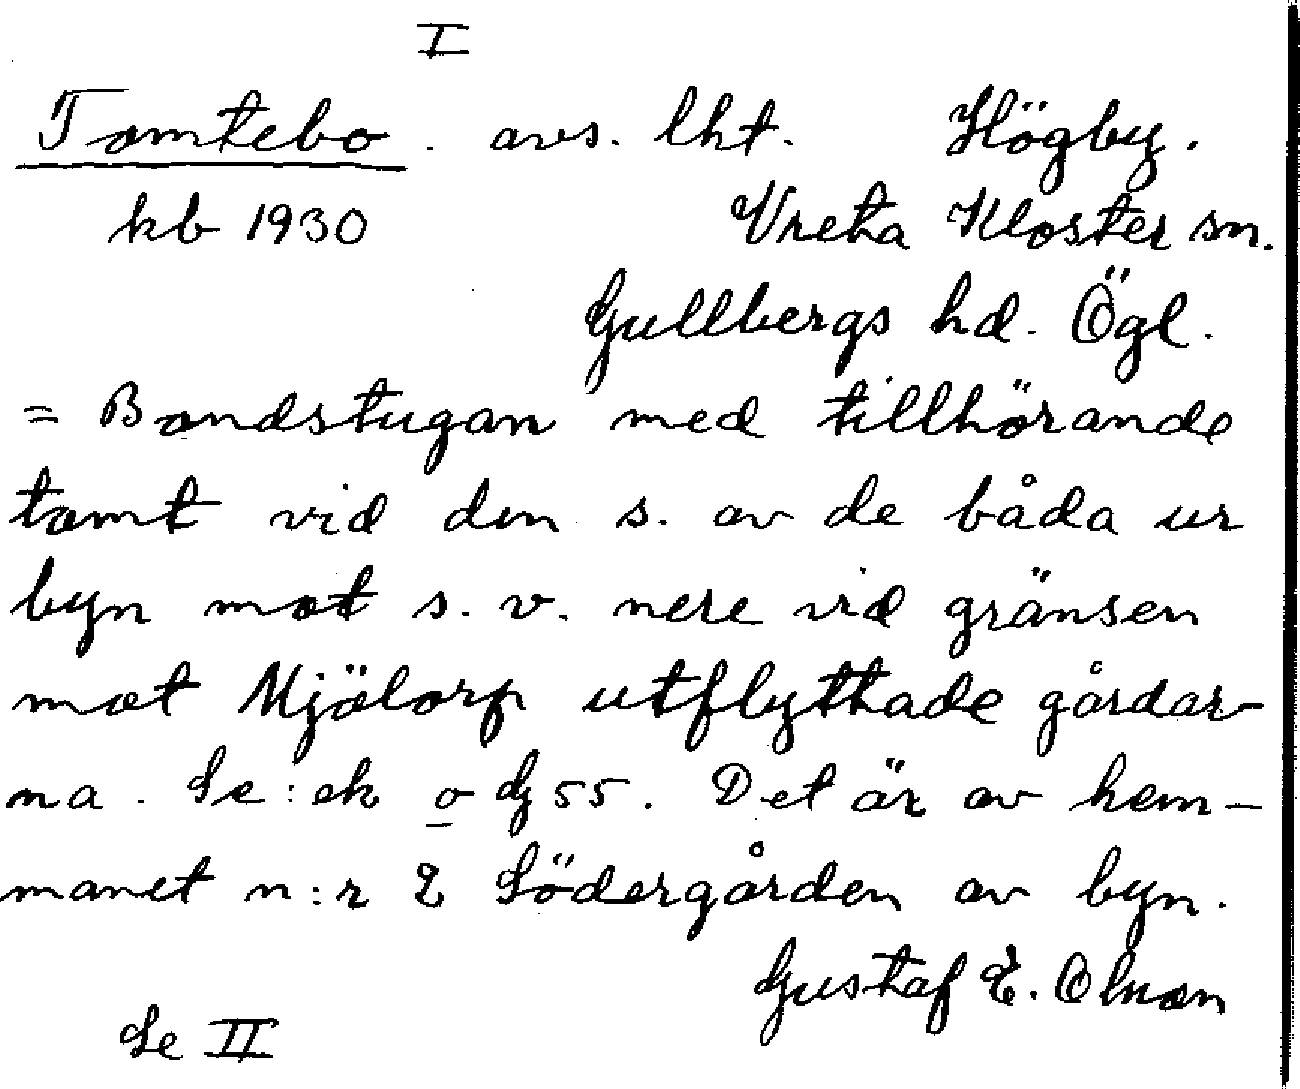 I
Tomtebo. avs. lht. Högby.
kb 1930 Vreta Kloster sn.
Gullbergs hd. Ögl.
= Bondstugan med tillhörande
tomt vid den s. av de båda ur
byn mot s. v. nere vid gränsen
mot Mjölorp utflyttade gårdar-
na. Se: ek o dg 55. Det är av hem-
manet n:r 2 Södergården av byn.
Gustaf E.
Se II